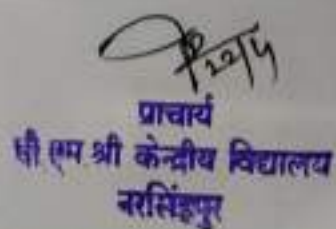 22/5
प्राचार्य
पी एम श्री केन्द्रीय विद्यालय
नरसिंहपुर